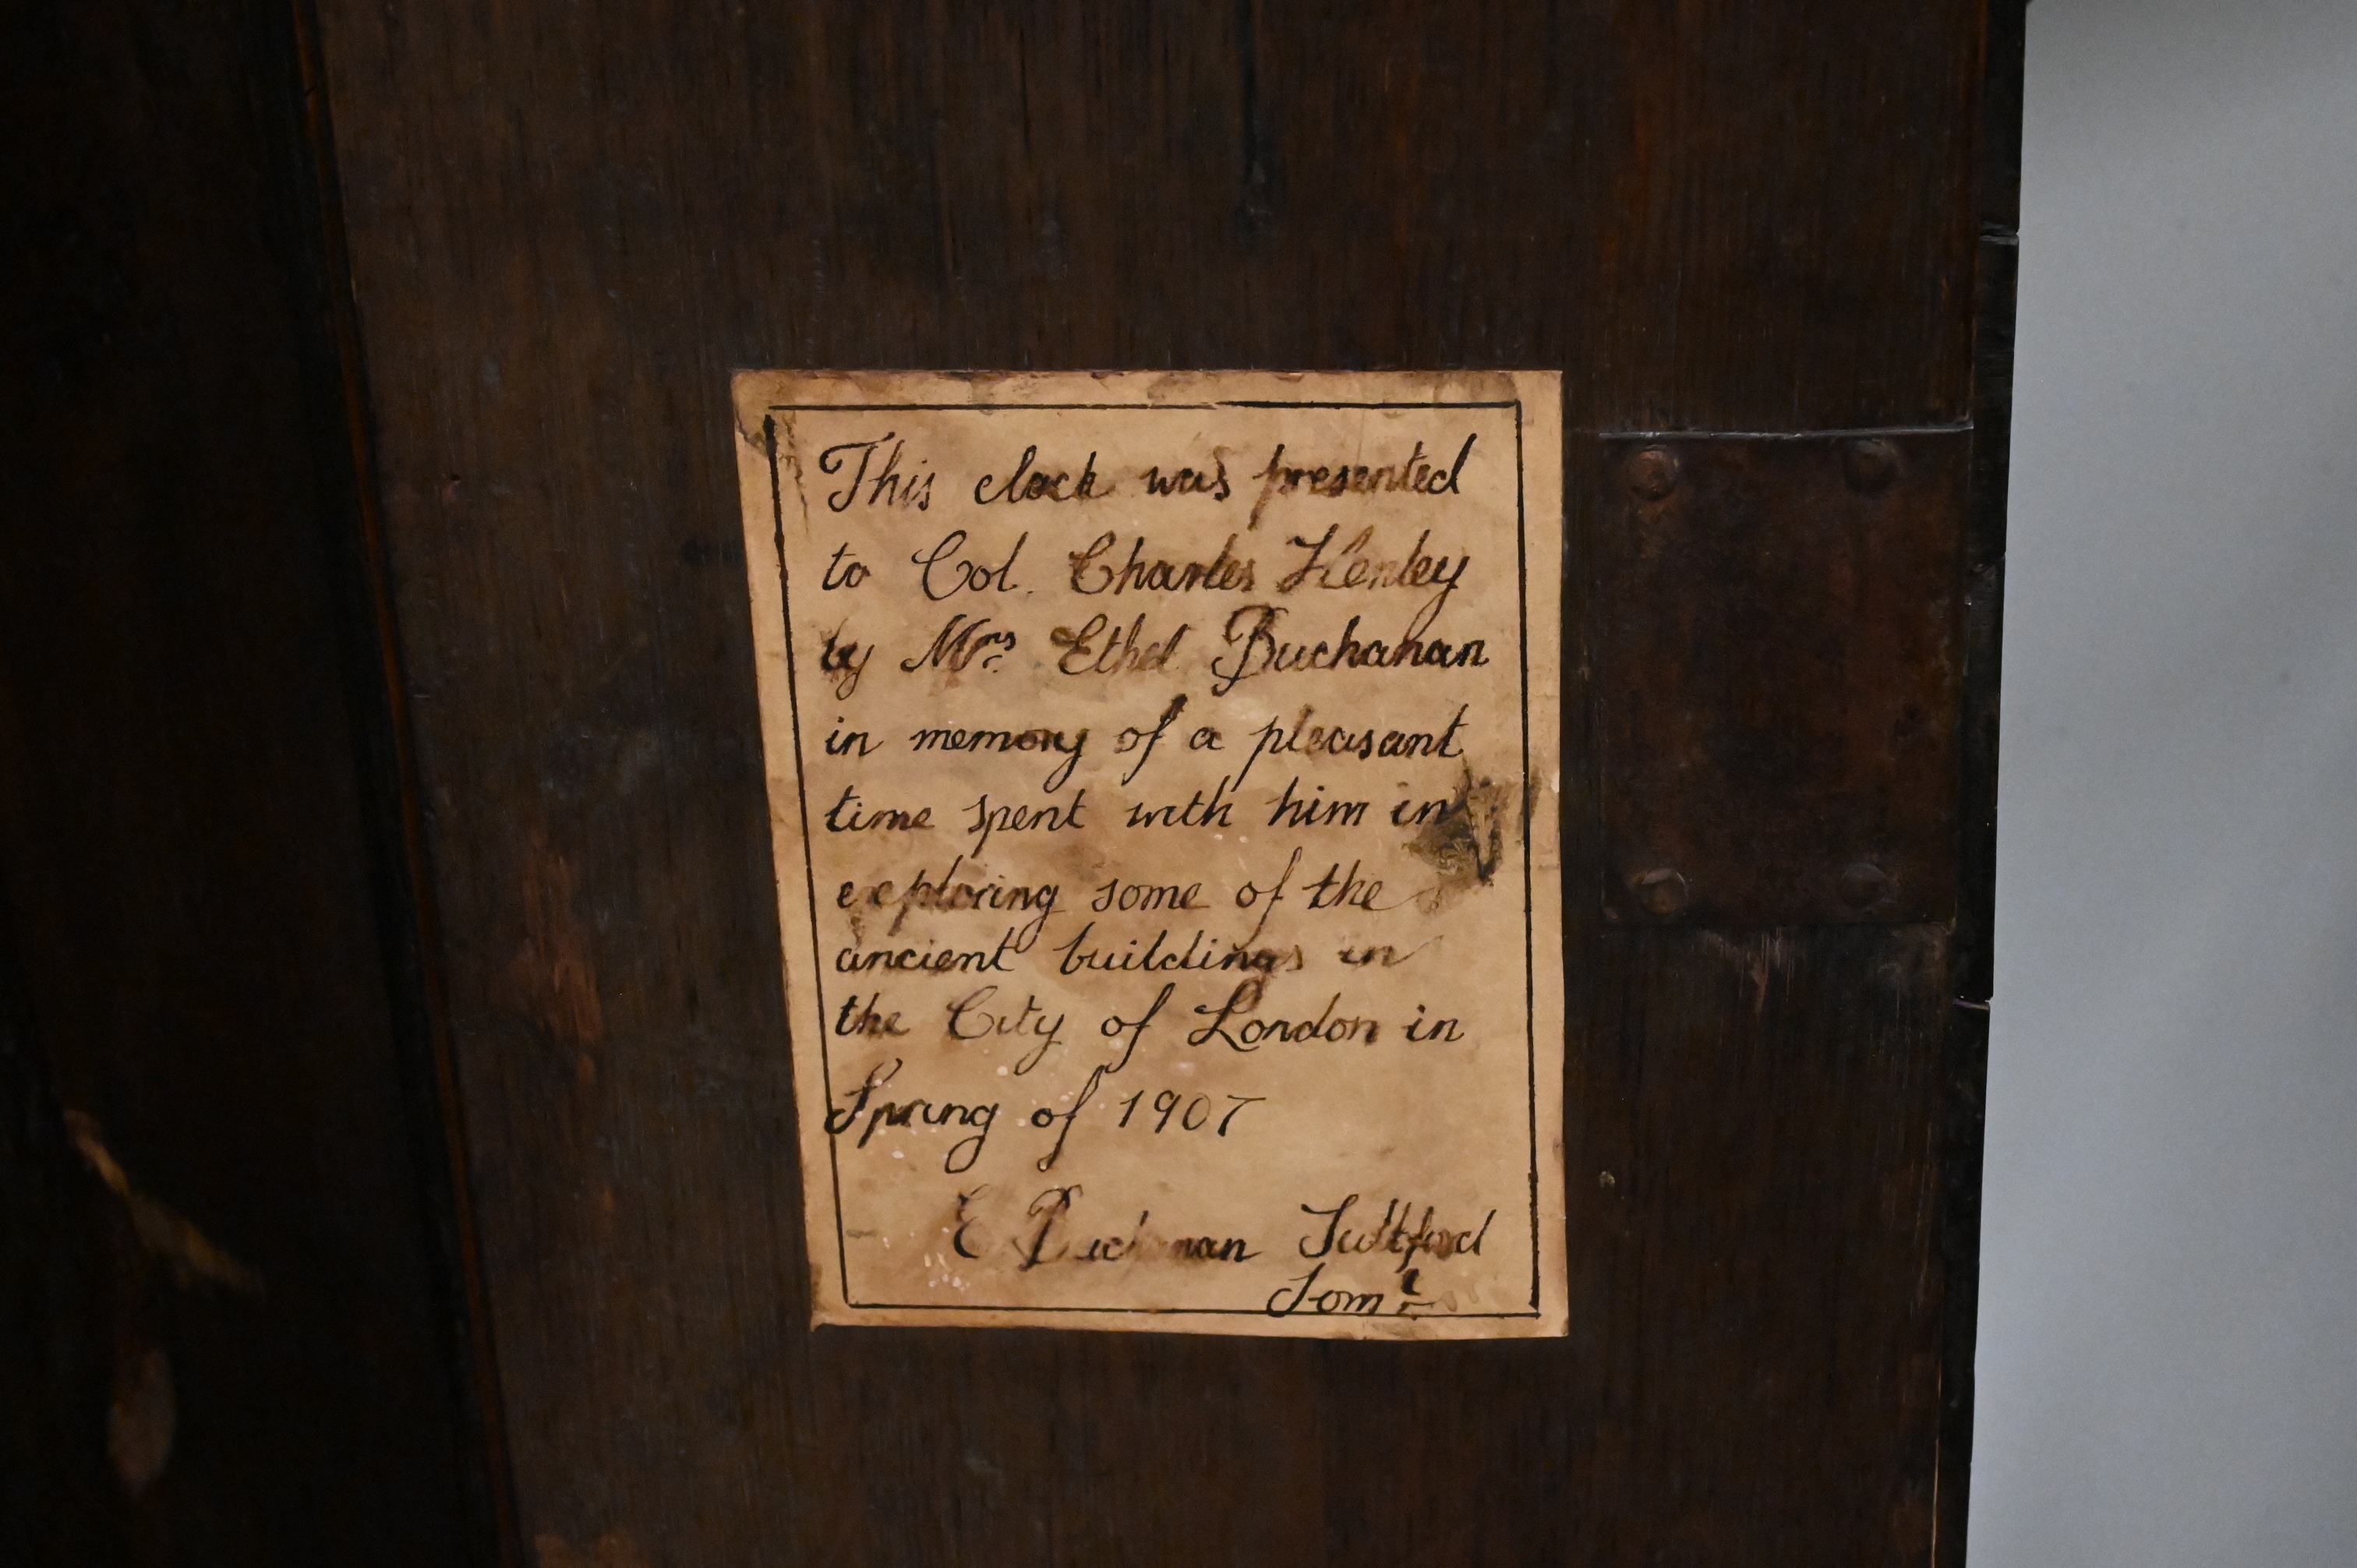 This clock was presented
to Col. Charles Henley
by Mrs. Ethel Buchanan
in memory of a pleasant
time spent with him in
exploring some of the
ancient buildings in
the City of London in
Spring of 1907
E Buchanan
Som.t